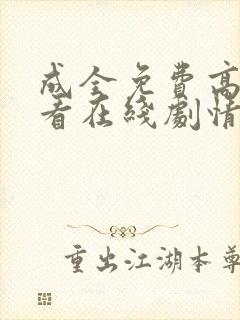 成全免費高
看在綫劇情
重出江湖本尊